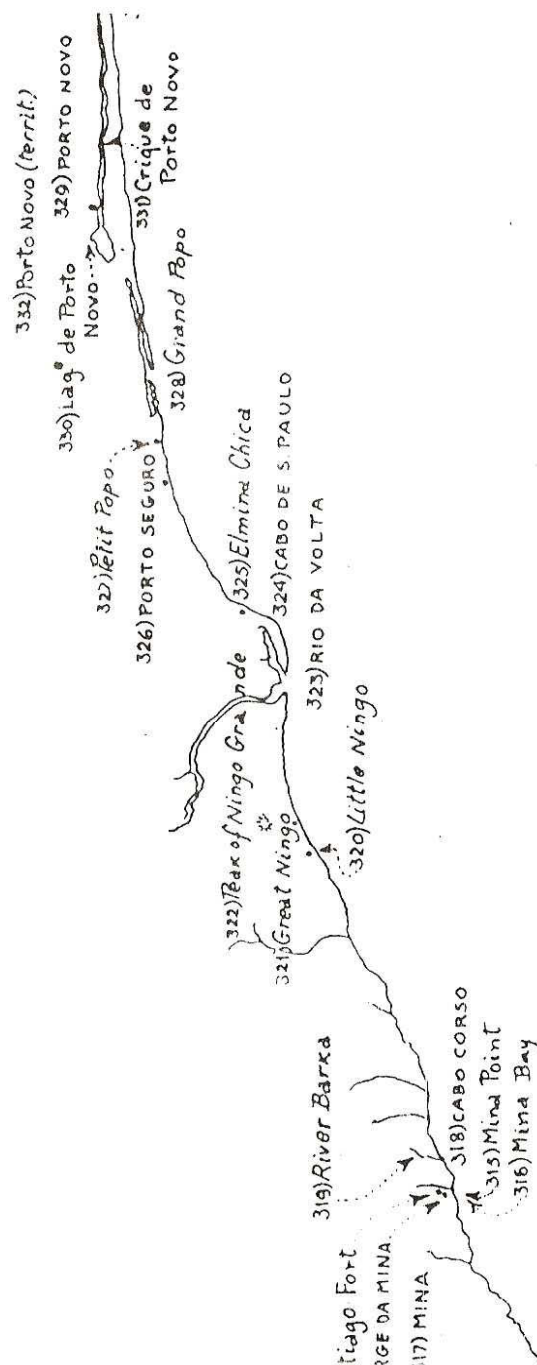 332) Porto Novo (territ.)
329) PORTO NOVO
331) Crique de
Porto Novo
330) Lage de Porto
Novo
328) Grand Popo
327) Petit Popo
326) PORTO SEGURO
325) Elmina Chica
324) CABO DE S. PAULO
323) RIO DA VOLTA
322) Peak of Ningo Grande
321) Great Ningo
320) Little Ningo
319) River Barka
318) CABO CORSO
315) Mina Point
316) Mina Bay
tiago Fort
RGE DA MINA
17) MINA